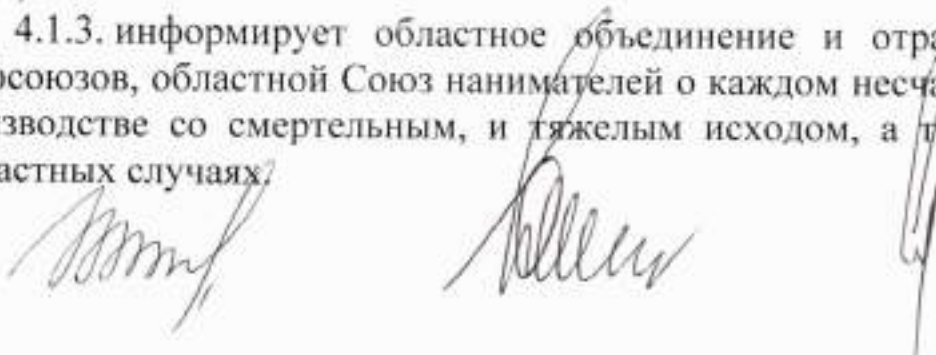 4.1.3. информирует областное объединение и отра
союзов, областной Союз нанимателей о каждом несча
зводстве со смертельным, и тяжелым исходом, а т
астных случаях.